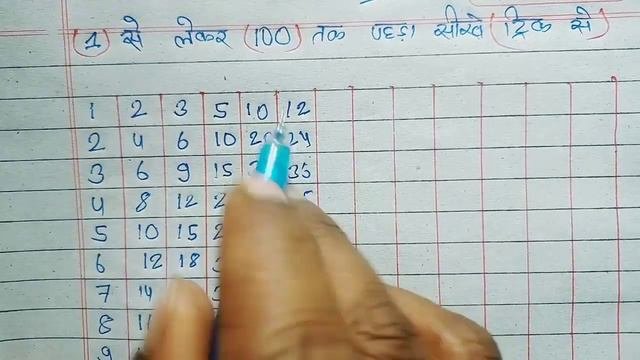 (1) से लेकर (100) तक पहाड़ा सीखे (ट्रिक से)
1 2 3 5 10 12
2 4 6 10 24
3 6 9 15 35
4 8 12
5 10 15
6 12 18
7 14
8
9